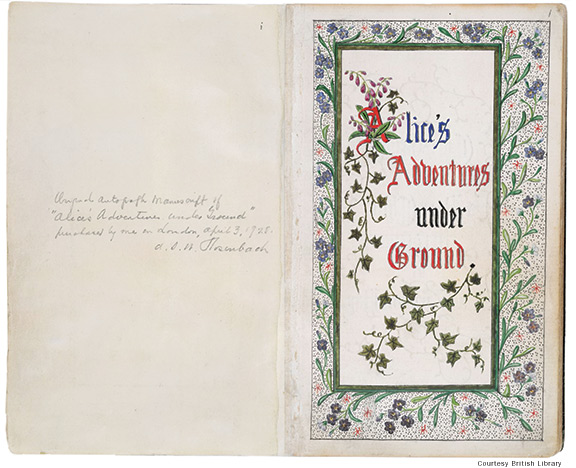 i
Original autograph manuscript of
"Alice's Adventures under Ground"
purchased by me in London, April 3, 1928.
A. S. W. Rosenbach
1
Alice's
Adventures
under
Ground
Courtesy British Library